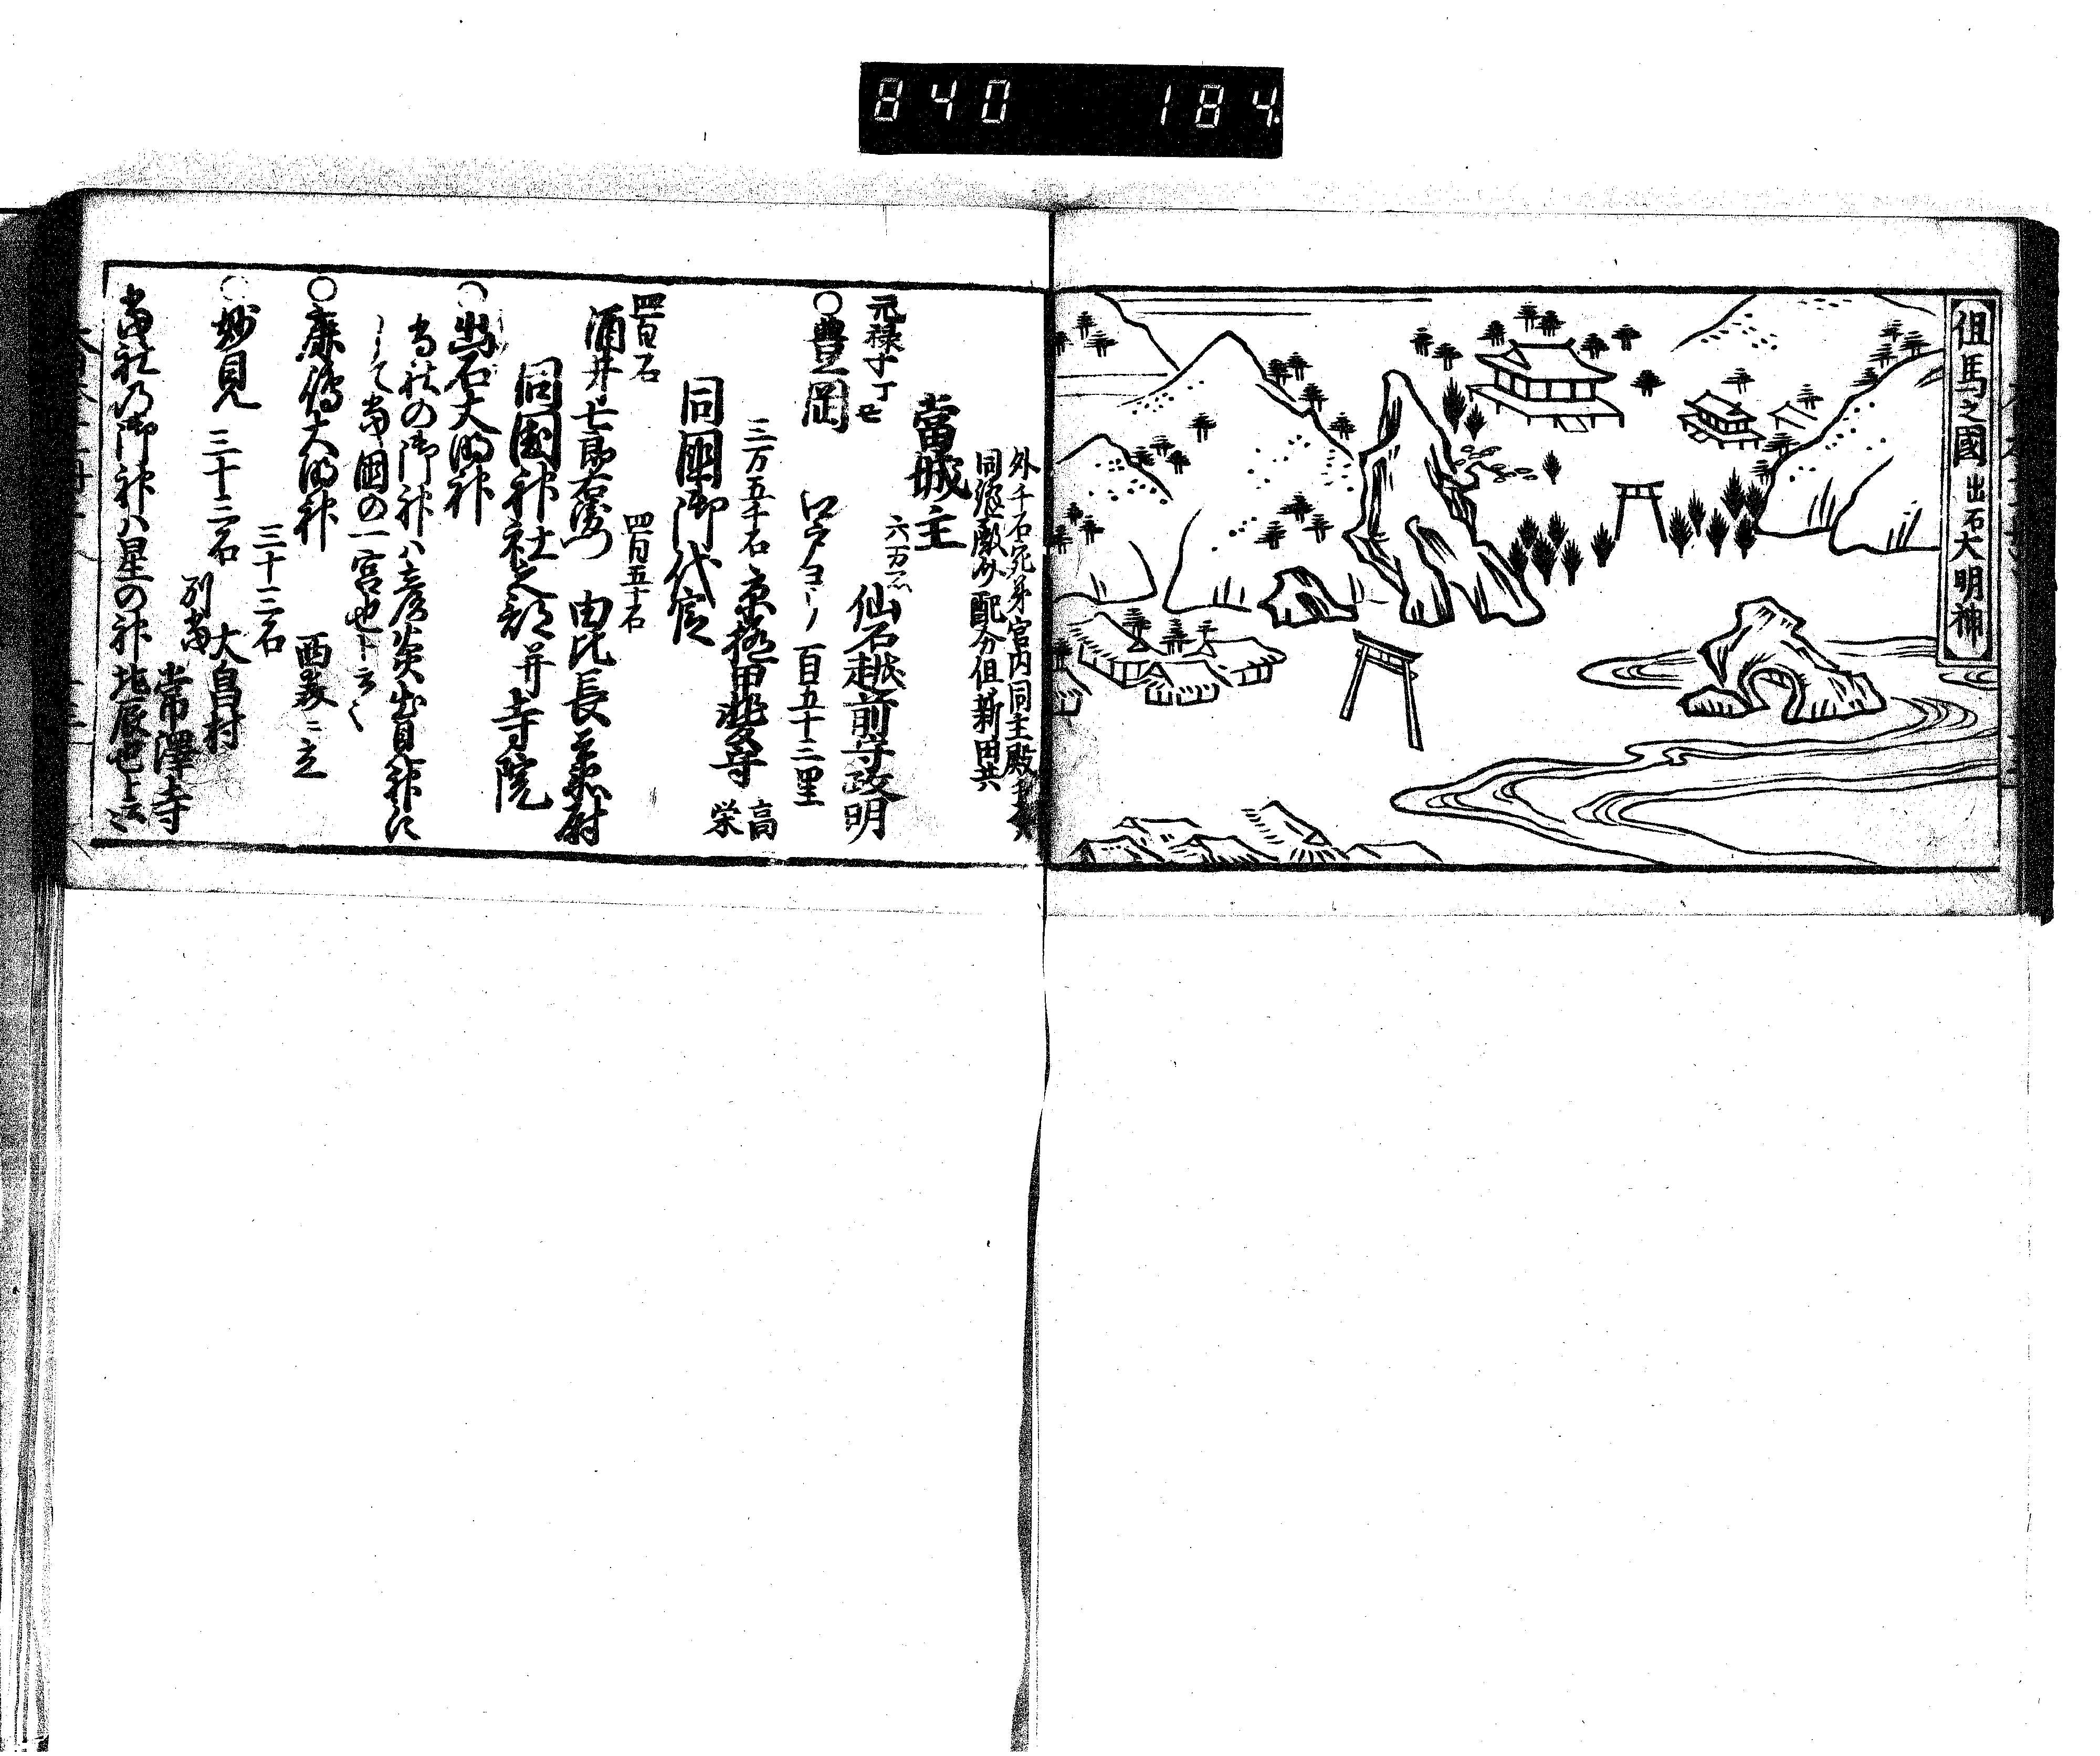 840 184
但馬之國 出石大明神
外千石宛弟宮内同主殿
同縫殿分配分但新田共
當城主
六万石
仙石越前守政明
元禄十丁丑
○豊岡 江戸ヨリ百五十三里
三万五千石
京極甲斐守 高栄
同國御代官
四百石 四百五十石
酒井七郎右衛門 由比長兵衛尉
同國神社之部并寺院
○出石大明神
当社の御神ハ彦炎出見神に
して当國の一宮也ト云々
○麻傅大明神 西薮ニ立
三十三石
○妙見 三十三石 大昌村
別当 常澤寺
当社乃御神ハ星の神北辰也と云